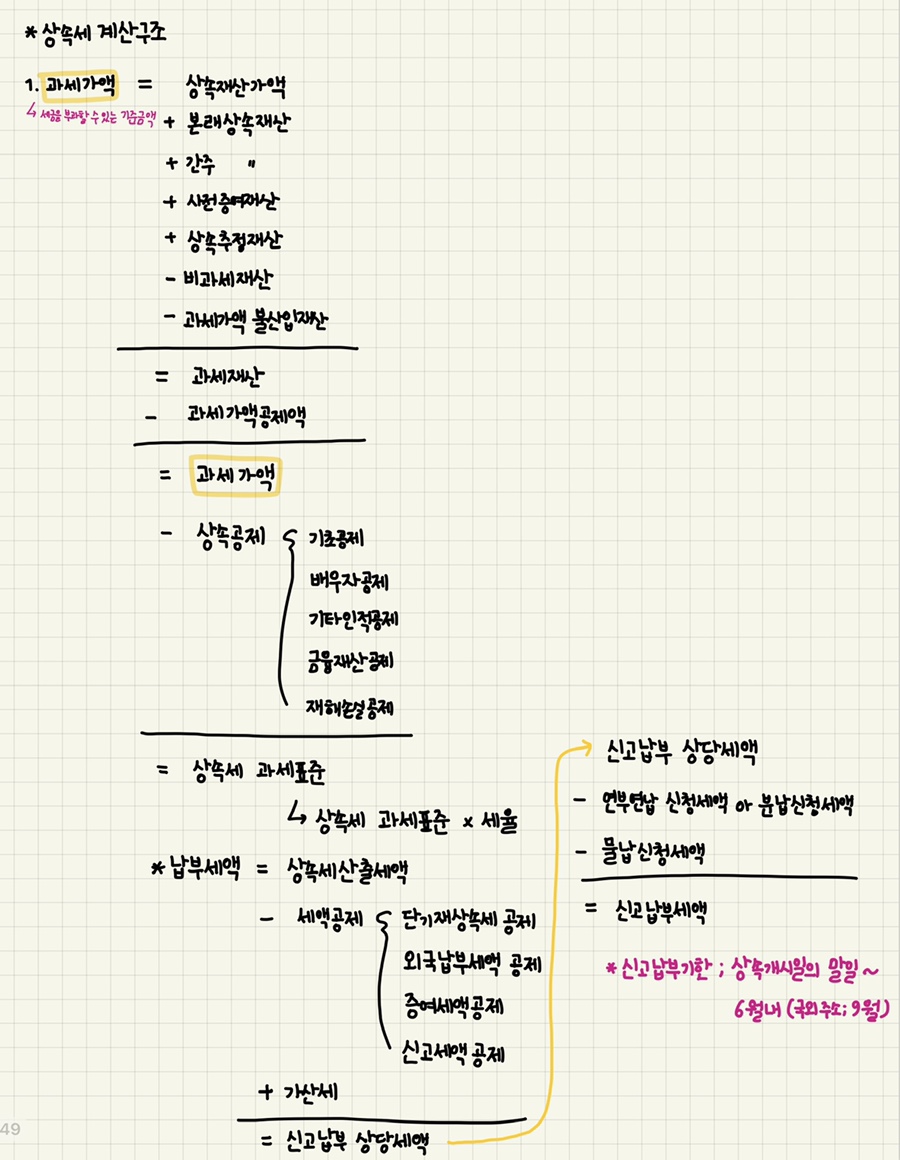 * 상속세 계산구조
1. 과세가액 = 상속재산가액
↳ 세금을 부과할 수 있는 기준금액
+ 본래상속재산
+ 간주 〃
+ 사전증여재산
+ 상속추정재산
- 비과세재산
- 과세가액 불산입재산
= 과세재산
- 과세가액공제액
= 과세가액
- 상속공제 { 기초공제
배우자공제
기타인적공제
금융재산공제
재해손실공제
= 상속세 과세표준
↳ 상속세 과세표준 x 세율
* 납부세액 = 상속세산출세액
- 세액공제 { 단기재상속세 공제
외국납부세액 공제
증여세액공제
신고세액공제
+ 가산세
= 신고납부 상당세액
→ 신고납부 상당세액
- 연부연납 신청세액 or 분납신청세액
- 물납신청세액
= 신고납부세액
* 신고납부기한 ; 상속개시일의 말일~
6월내 (국외주소; 9월)
49